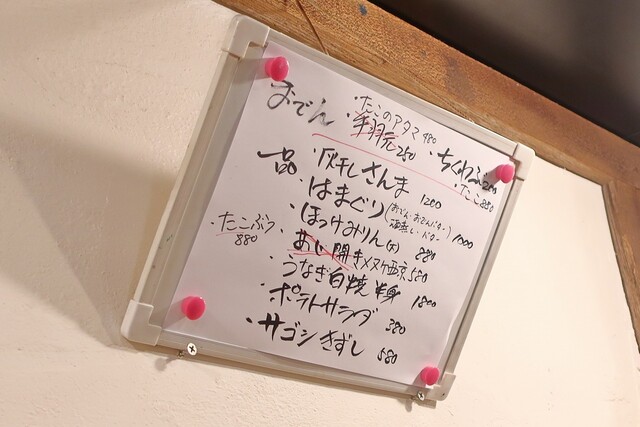 おでん
・たこのアタマ 480
・手羽元 250
・ちくわぶ 200
・たこ 350
一品
・灰干しさんま 1200
・はまぐり(おでん・おでんバター・酒蒸し・バター) 1000
・ほっけみりん(大) 880
・たこぶつ 880
・あじ開き メヌケ西京 580
・うなぎ白焼 半身 1800
・ポテトサラダ 380
・サゴシきずし 580